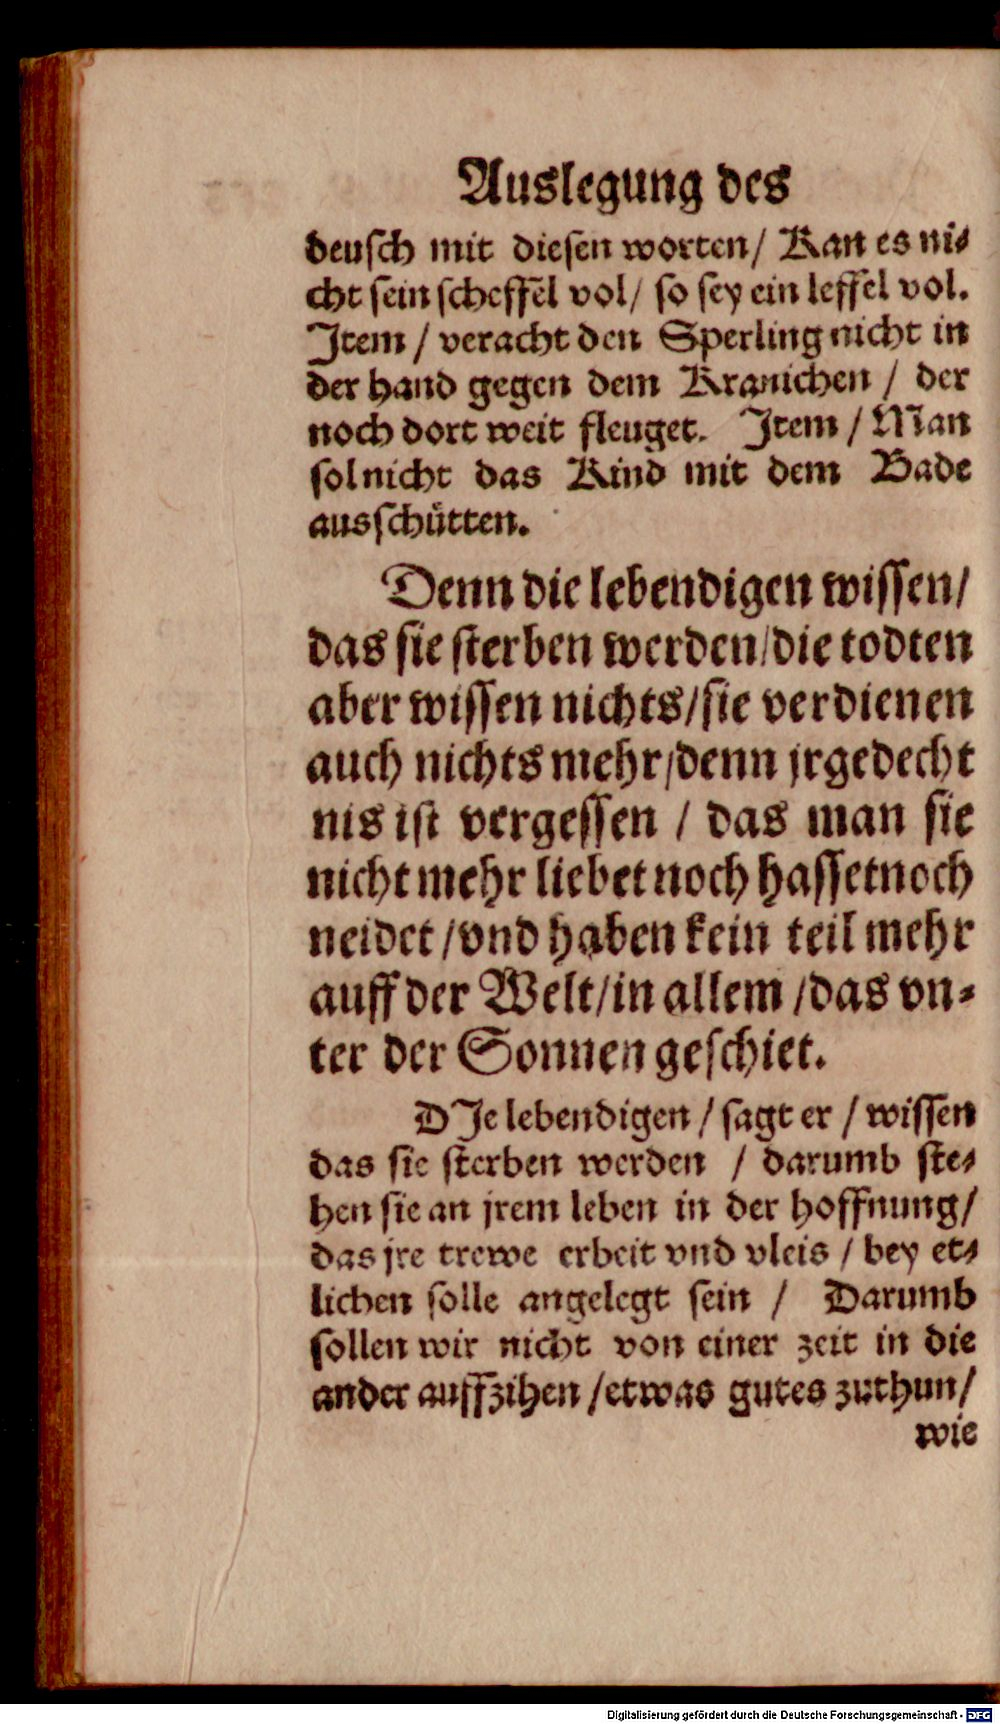 Auslegung des
deusch mit diesen worten/ Kan es ni⸗
cht sein scheffel vol/ so sey ein leffel vol.
Item / veracht den Sperling nicht in
der hand gegen dem Kranichen / der
noch dort weit fleuget. Item / Man
sol nicht das Kind mit dem Bade
ausschütten.
Denn die lebendigen wissen/
das sie sterben werden/die todten
aber wissen nichts/sie verdienen
auch nichts mehr/denn jr gedecht
nis ist vergessen / das man sie
nicht mehr liebet noch hasset noch
neidet /vnd haben kein teil mehr
auff der Welt/in allem /das vn⸗
ter der Sonnen geschiet.
DIe lebendigen / sagt er / wissen
das sie sterben werden / darumb ste⸗
hen sie an jrem leben in der hoffnung/
das jre trewe erbeit vnd vleis / bey et⸗
lichen solle angelegt sein / Darumb
sollen wir nicht von einer zeit in die
ander auffzihen /etwas gutes zuthun/
wie
Digitalisierung gefördert durch die Deutsche Forschungsgemeinschaft - DFG